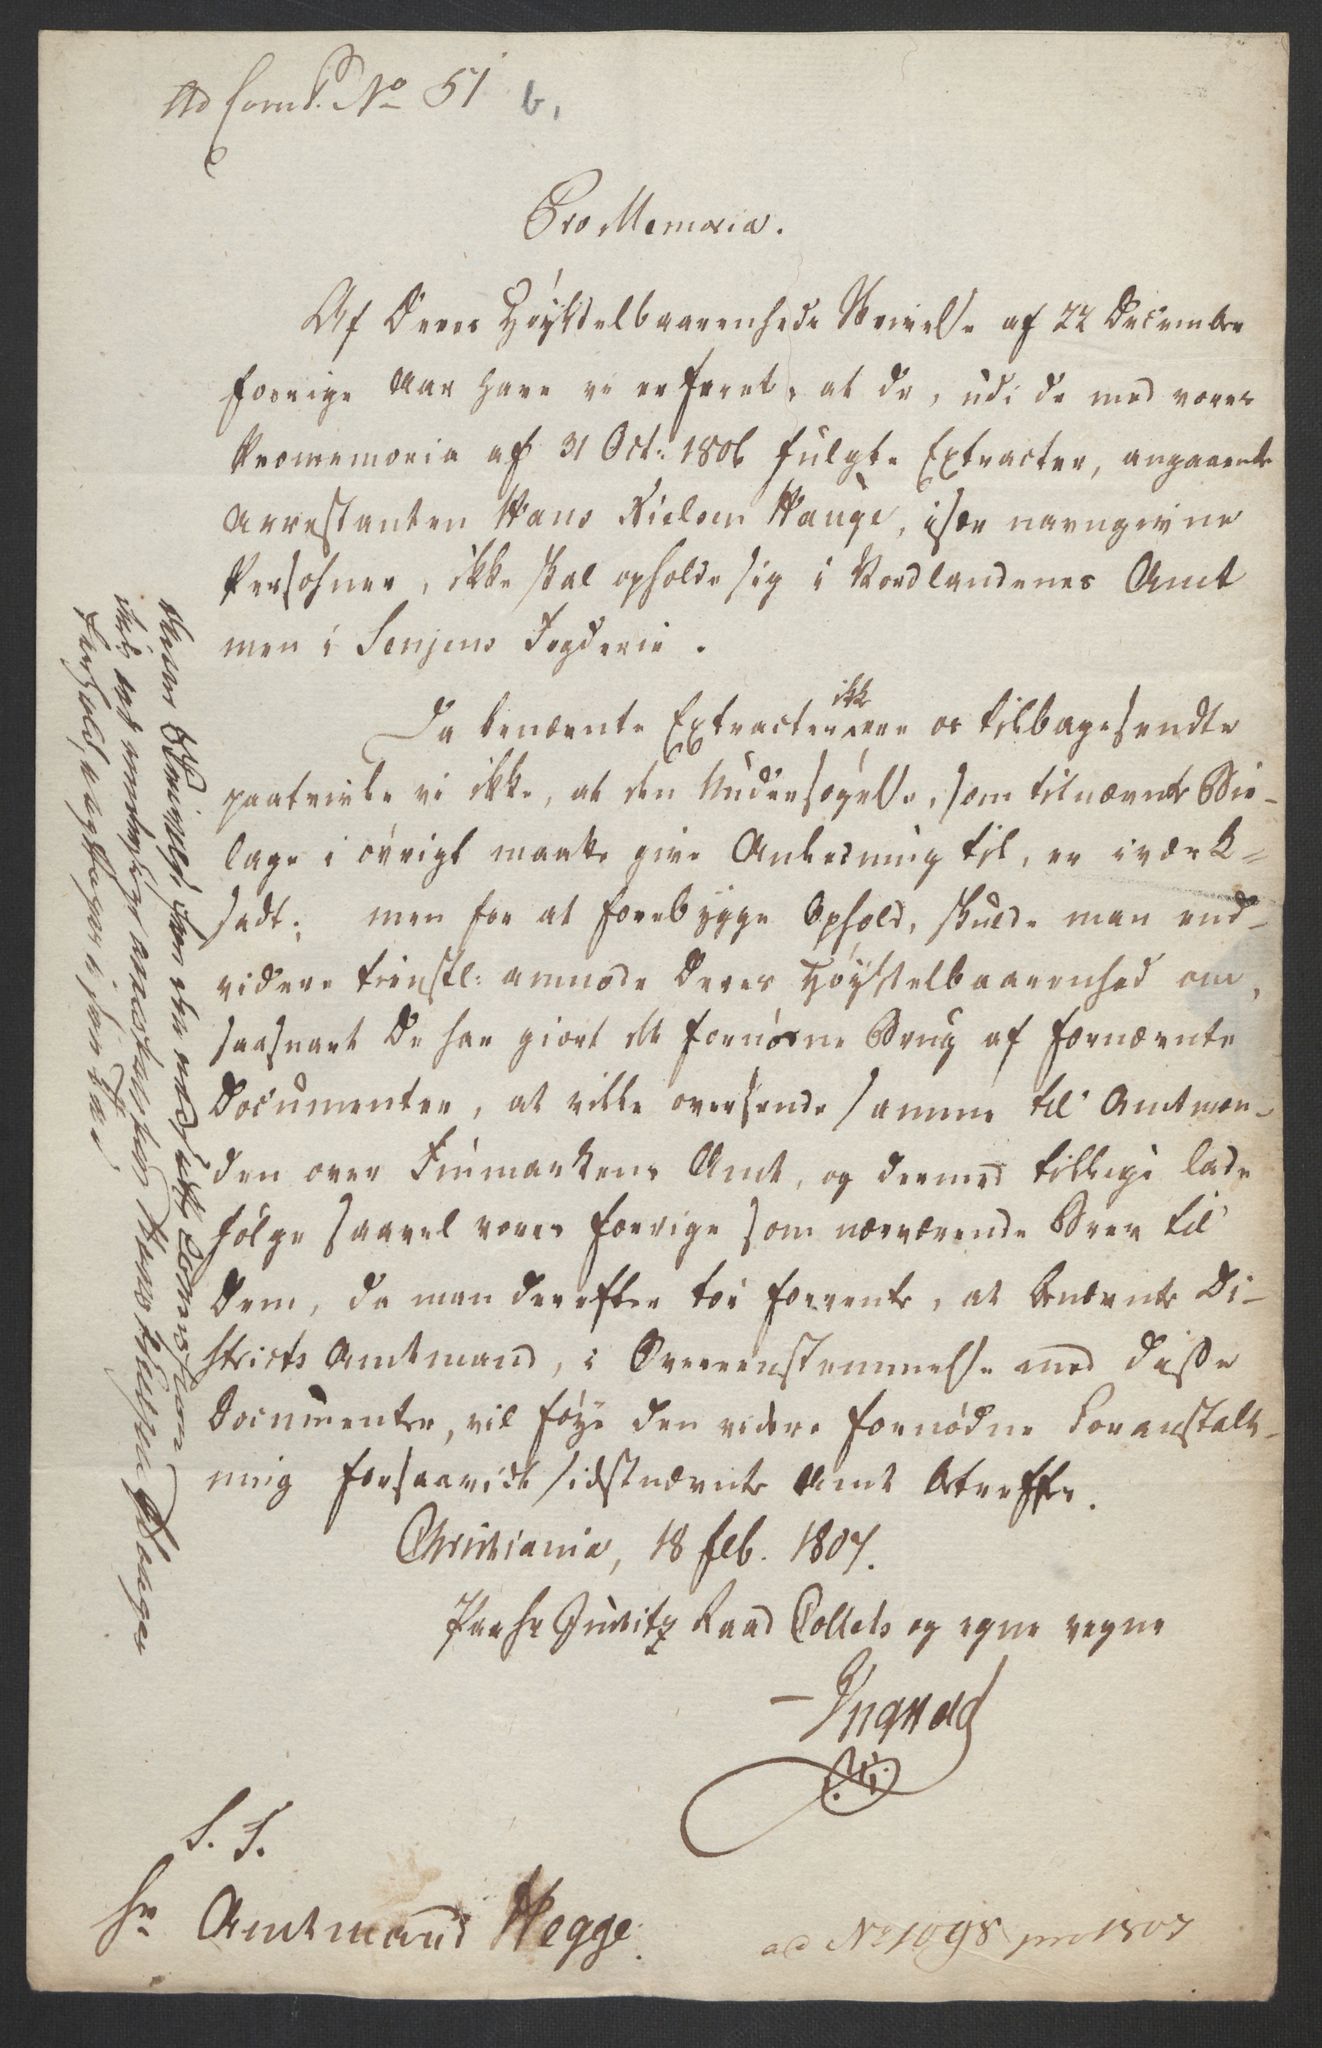 Ad Comt. No 51 b,
Pro Memoria.
Af Deres Høyædelbaarenheds Skrivelse af 22 December
forrige Aar have vi erfaret, at de, udi de med vores
Promemoria af 31 Oct: 1806 fulgte Extracter, angaaende
Arrestanten Hans Nielsen Hauge, især navngivne
Persohner, ikke skal opholde sig i Nordlandenes Amt
men i Senjens Fogderie.
Da benævnte Extracter ikke ere os tilbagesendte
paatvivle vi ikke, at den Undersøgelse, som tilnævnte Bie-
lage i øvrigt maatte give Anledning til, er iværk-
sadt; men for at forebygge Ophold, skulde man end-
videre tienstl: anmode Deres Høyædelbaarenhed om,
saasnart De har giort det fornødne Brug af fornævnte
Documenter, at ville oversende samme til Amtman-
den over Finmarkens Amt, og dermed tillige lade
følge saavel vores forrige som nærværende Brev til
Dem, da man derefter tør forvente, at benævnte Di-
stricts Amtmand, i Overeenstemmelse med disse
Documenter, vil føye den videre fornødne Foranstalt-
ning forsaavidt sidstnævnte Amt betreffer.
Christiania, 18 feb. 1807.
Paa Hr Justitz Raad Colletts og egne vegne
Ingstad
S. T.
Hr Amtmand Hegge.
ad No 1098 pro 1807
den ved Commission
det angaaende arrestanten Hans Nielsen Hauges
Forhold